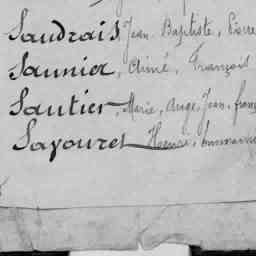 Saudrais, Jean, Baptiste, Pierre
Saunier, Aimé, François
Sautier, Marie, Ange, Jean, franç
Sayouret Henri, Emmanuel